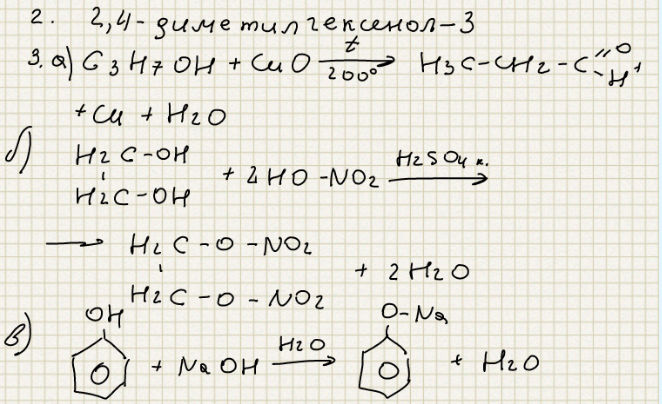 2. 2,4-диметилгексенол-3
3. а) C3H7OH + CuO t 200° → H3C-CH2-C=O -H +
+Cu + H2O
б) H2C-OH
H2C-OH + 2HO-NO2 H2SO4 к. →
→ H2C-O-NO2
H2C-O-NO2 + 2H2O
в) OH + NaOH H2O → O-Na + H2O